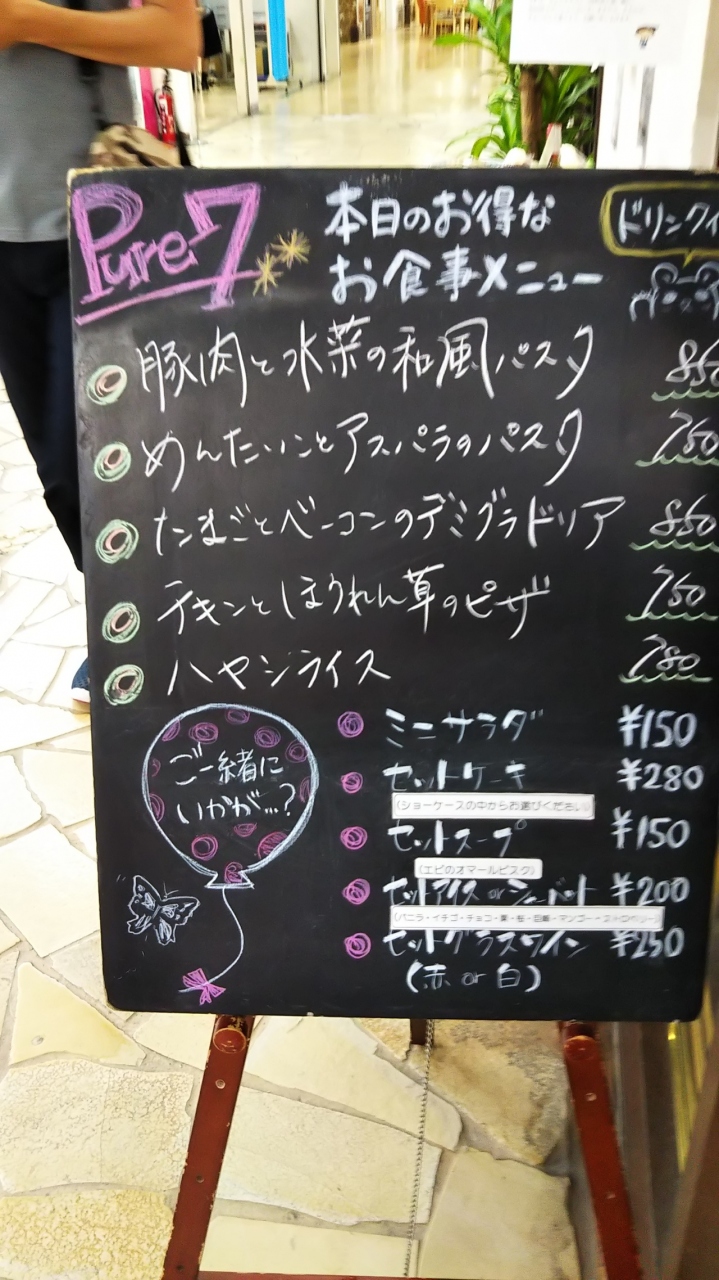 Pure 7
本日のお得な
お食事メニュー
ドリンク
豚肉と水菜の和風パスタ 860
めんたいことアスパラのパスタ 750
たまごとベーコンのデミグラドリア 860
チキンとほうれん草のピザ 750
ハヤシライス 780
ご一緒に
いかが...?
ミニサラダ ¥150
セットケーキ ¥280
(ショーケースの中からお選びください)
セットスープ ¥150
(エビのオマールビスク)
セットアイス or シャーベット ¥200
(バニラ・イチゴ・チョコ・栗・桜・巨峰・マンゴー・ストロベリー)
セットグラスワイン ¥250
(赤 or 白)